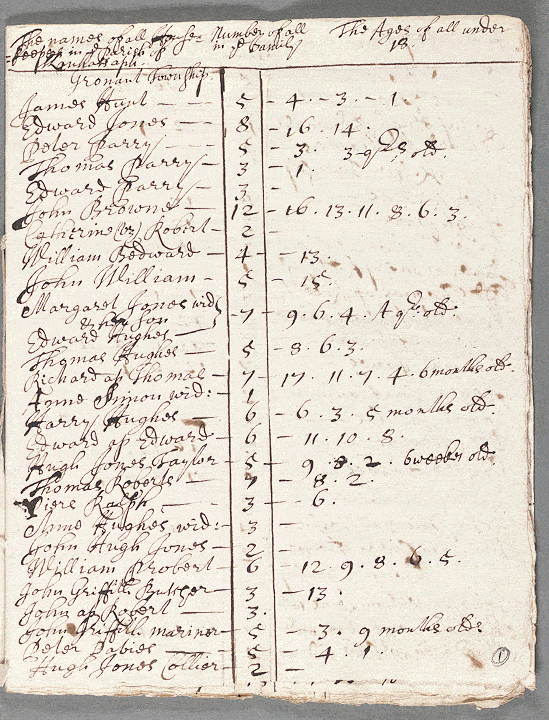 The names of all house- Number of all The Ages of all under
keepers in ye Parish of in ye Family 18.
Llanhassaph.
Gronant Township
James Hunt - 5 - 4 - 3 - 1.
Edward Jones - 8 - 16 . 14 .
Peter Parry - 5 - 3 . 3 qrs old.
Thomas Parry - 3 - 1 .
Edward Parry - 3 -
John Browne - 12 - 16 . 13 . 11 . 8 . 6 . 3 .
Catherine Robert - 2 -
William Bedward - 4 - 13 .
John William - 5 - 15 .
Margaret Jones wid
& her son - 7 - 9 . 6 . 4 . A qr old.
Edward Hughes -
Thomas Hughes - 5 - 8 . 6 . 3
Richard ap Thomas - 7 - 17 11 . 7 . 4 . 6 months old.
Simon wid: - 1
Harry Hughes - 6 - 6 . 3 . 5 months old.
Edward ap Edward - 6 - 11 . 10 . 8 .
Hugh Jones Taylor - 5 - 9 . 8 . 2 . 6 weeks old
Thomas Roberts - 7 - 8 . 2 .
Piere Ralph - 3 - 6 .
Anne Hughes wid: - 3 -
John Hugh Jones - 2 -
William Probert - 6 - 12 . 9 . 8 . 6 . 5 .
John Griffith Butcher - 3 - 13 .
John ap Robert - 3 .
John Griffith mariner - 5 - 3 . 9 months old:
Peter Davies - 5 - 4 . 1 .
Hugh Jones Collier - 2 -
1